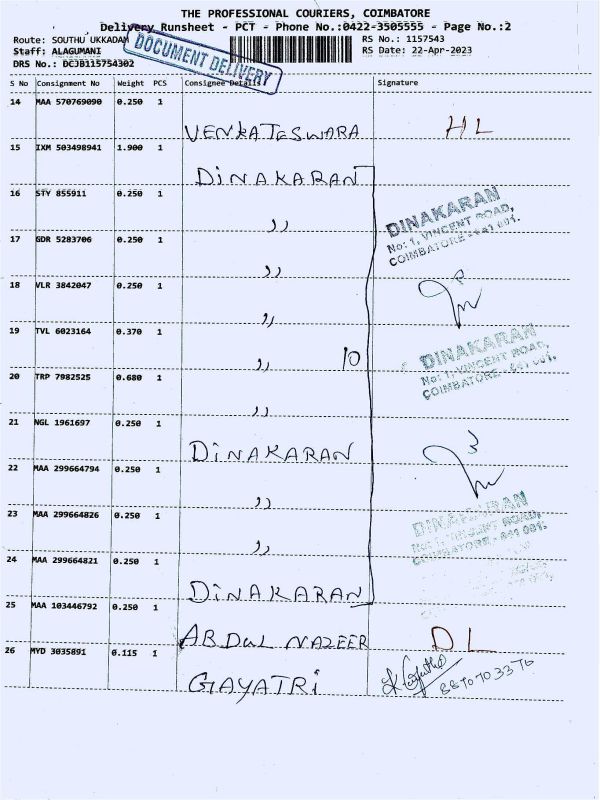 THE PROFESSIONAL COURIERS, COIMBATORE
Delivery Runsheet - PCT - Phone No.:0422-3505555 - Page No.:2
Route: SOUTHU UKKADAM
RS No.: 1157543
Staff: ALAGUMANI
RS Date: 22-Apr-2023
DRS No.: DCJB115754302
DOCUMENT DELIVERY
S No Consignment No Weight PCS Consignee Details Signature
14 MAA 570769090 0.250 1
VENKATESWARA HL
15 IXM 503498941 1.900 1
DINAKARAN
16 STY 855911 0.250 1
,,
DINAKARAN
No: 1, VINCENT ROAD,
COIMBATORE - 641 001.
17 GDR 5283706 0.250 1
,,
18 VLR 3842047 0.250 1
,,
19 TVL 6023164 0.370 1
,, 10
DINAKARAN
No: 1, VINCENT ROAD,
COIMBATORE - 641 001.
20 TRP 7982525 0.680 1
,,
21 NGL 1961697 0.250 1
DINAKARAN
22 MAA 299664794 0.250 1
,,
23 MAA 299664826 0.250 1
,,
DINAKARAN
No: 1, VINCENT ROAD,
COIMBATORE - 641 001.
24 MAA 299664821 0.250 1
DINAKARAN
25 MAA 103446792 0.250 1
ABDUL NAZEER DL
26 MYD 3035891 0.115 1
GAYATRI